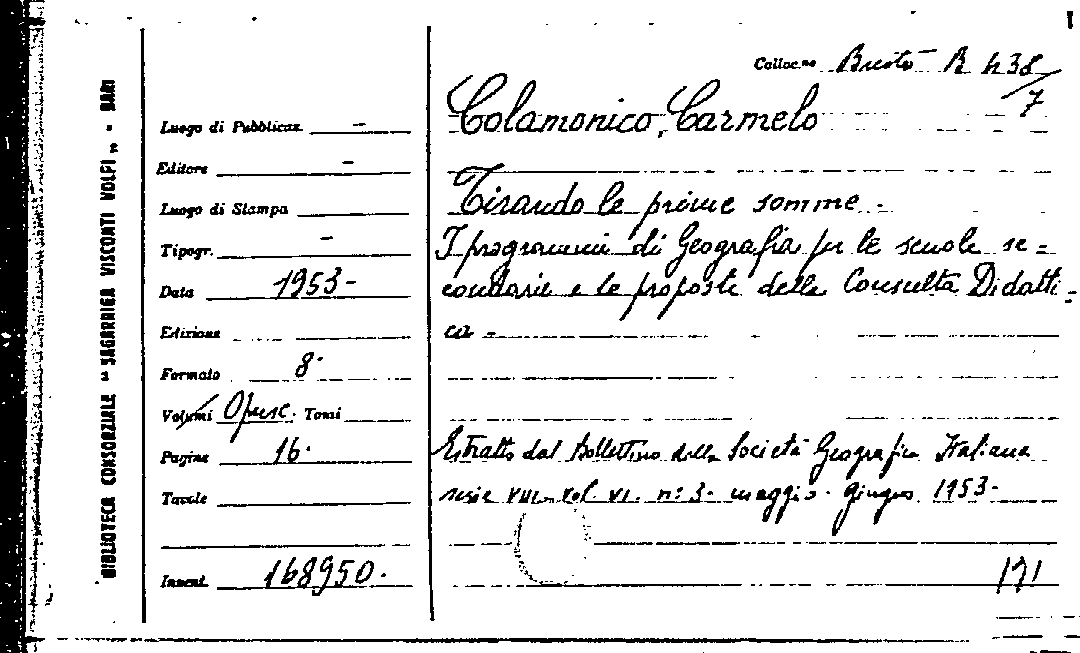 BIBLIOTECA CONSORZIALE "SAGARRIGA VISCONTI VOLPI" - BARI
Colloc.ne Busta R 438/7
Luogo di Pubblicaz. -
Editore -
Luogo di Stampa
Tipogr. -
Data 1953-
Edizione
Formato 8°
Volumi Opusc. Tomi
Pagine 16.
Tavole
Invent. 168950.
Colamonico, Carmelo
Tirando le prime somme -
I programmi di Geografia per le scuole se=
condarie e le proposte della Consulta Didatti=
ca -
Estratto dal Bollettino della Società Geografica Italiana
serie VIII- vol. VI. n: 3- maggio - giugno 1953-